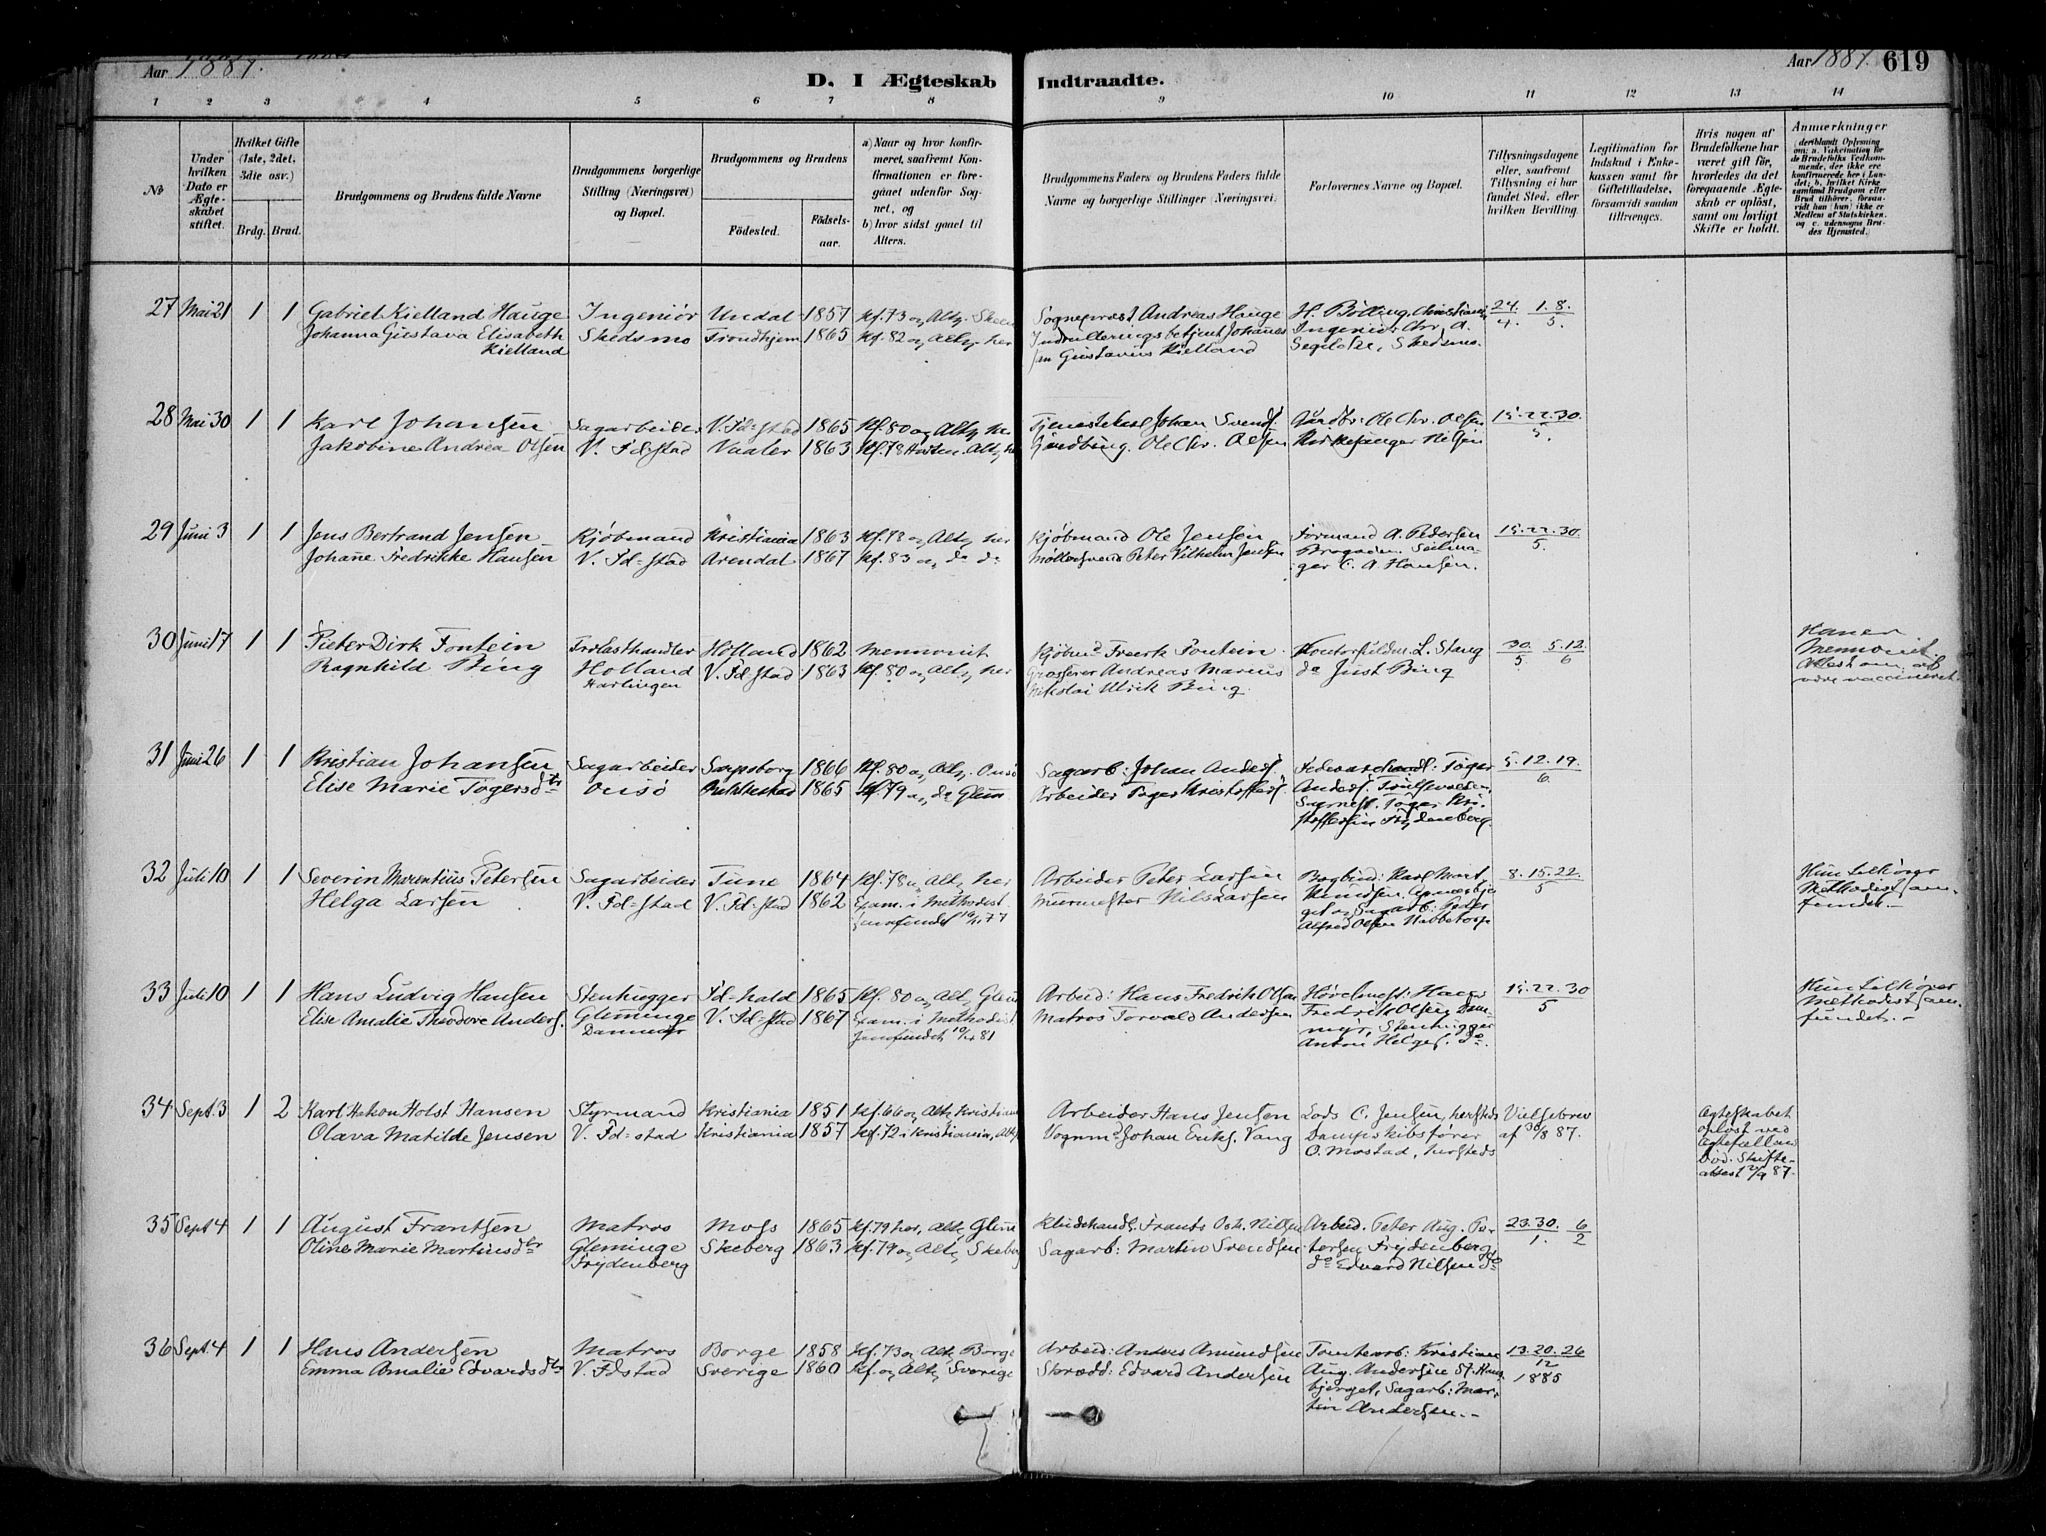 Aar 1887.
D. I Ægteskab Indtraadte.
Aar 1887. 619
1 2 3 4 5 6 7 8 9 10 11 12 13 14
No
Under hvilken Dato er Ægteskabet stiftet.
Hvilket Gifte (1ste, 2det, 3die osv.)
Brdg. Brud.
Brudgommens og Brudens fulde Navne
Brudgommens borgerlige Stilling (Næringsvei) og Bopæl.
Brudgommens og Brudens
Födested. Födsels-aar.
a) Naar og hvor konfirmeret, saafremt Konfirmationen er foregaaet udenfor Sognet, og
b) hvor sidst gaaet til Alters.
Brudgommens Faders og Brudens Faders fulde Navne og borgerlige Stillinger (Næringsvei).
Forlovernes Navne og Bopæl.
Tillysningsdagene eller, saafremt Tillysning ei har fundet Sted, efter hvilken Bevilling.
Legitimation for Indskud i Enkekassen samt for Giftetilladelse, forsaavidt saadan tiltrænges.
Hvis nogen af Brudefolkene har været gift før, hvorledes da det foregaaende Ægteskab er opløst, samt om lovligt Skifte er holdt.
Anmerkninger (deriblandt Oplysning om: a. Vakcination for de Brudefolks Vedkommende, der ikke ere konfirmerede her i Landet; b. hvilket Kirkesamfund Brudgom eller Brud tilhörer, forsaavidt han (hun) ikke er Medlem af Statskirken, og c. udensogns Brudes Hjemsted.
27 Mai 21 1 1 Gabriel Kielland Hauge Ingeniör Undal 1857 Kf. 73 og Altg. Sogneprest Andreas Hauge H. Bötting, Christiania 24. 1. 8.
Johanna Gustava Elisabeth Skedsmo Trondhjem 1865 Kf. 82 og Altg. her Indrulleringsbetjent Johannes Ingeniör Chr. A. 4. 5.
Kielland Jan Gustavus Kielland Skedsmo.
28 Mai 30 1 1 Karl Johansen Sagarbeider V. Fd=stad 1865 Kf. 80 og Altg. her Tjenestekarl Johan Svends. Gaardbr: Ole Chr. Olsen 15.22.30
Jakobine Andrea Olsen V. Fd=stad Vaaler 1863 Kf. 78 Altg. her Ole Chr. Olsen Kirkesanger Nilsen 5.
29 Juni 3 1 1 Jens Bertrand Jensen Kjöbmand Kristiania 1863 Kf. 78 og Altg. her Kjöbmand Ole Jensen Formand A. Pedersen 15.22.30
Johane Fredrikke Hansen V. Fd=stad Arendal 1867 Kf. 83 og do do Peter Vilhelm Jensen Seilmager C. A. Hansen. 5.
30 Juni 17 1 1 Pieter Dirk Fontein Trælasthandler Holland 1862 Mennonit Kjöbmd Freerk Fontein Kontorfuldm. L. Stang 30. 5.12 Han er
Ragnhild Bing Holland V. Fd=stad 1863 Kf. 80 og Altg. her Grosserer Andreas Marius do Just Bing 5 6 Mennonit.
Harlingen Nikolai Ulrik Bing. Attest om at være vaccineret.
31 Juni 26 1 1 Kristian Johansen Sagarbeider Sarpsborg 1866 Kf. 80 og Altg. Onsö Sagarb: Johan Anders. Töger 5.12.19.
Elise Marie Tögersdtr Onsö Rakkestad 1865 Kf. 79 og do Glem. Arbeider Töger Kristoffers. Anders. 6
Töger Kristoffersen Frydenberg.
32 Juli 10 1 1 Severin Marentius Petersen Sagarbeider Tune 1864 Kf. 78 og Altg. her Arbeider Peter Larsen Bogbind: Karl 8.15.22. Hun tilhörer
Helga Larsen V. Fd=stad V. Fd=stad 1862 Exam. i Methodist Murmester Nils Larsen Knudsen, 5 Methodistsamfundet.-
Samfundet 77 Sagarb: Peder Alfred Olsen Nabbetorp
33 Juli 10 1 1 Hans Ludvig Hansen Stenhugger Fd=hald 1865 Kf. 80 og Altg. Glem Arbeid: Hans Fredrik Olsen Hövelmest: Hans 15.22.30 Hun tilhörer
Elise Amalie Theodore Anders. Gleminge V. Fd=stad 1867 Exam. i Methodist Matros Torvald Andersen Fredrik Olsen 5 Methodistsamfundet.-
Dammyr Samfundet 81 Dammyr, Stenhugger Anton Helges. do.
34 Sept. 3 1 2 Karl Hakon Holst Hansen Styrmand Kristiania 1851 Kf. 66 og Altg. Kristiania Arbeider Hans Jensen Lods C. Jensen, hersteds Vielsebrev Ægteskabet
Olava Matilde Jensen V. Fd=stad Kristiania 1857 Kf. 72 i Kristiania, Altg. Vognmd Johan Eriks. Vang Dampskibsförer af 30/8 87. oplöst ved
O. Mostad, hersteds Ægtefællens Död. Skifteattest 2/9 87.
35 Sept 4 1 1 August Frantsen Matros Moss 1865 Kf. 79 her, Altg. Glem. Kludehandl. Frants Och. Nilsen Arbeid. Peter Aug. Pe- 23.30. 6
Oline Marie Martinsdtr Gleminge Skeberg 1863 Kf. 79 og Altg. Skeberg Sagarb: Martin Svendsen tersen Frydenberg 1. 2
Frydenberg do Edvard Nilsen do
36 Sept. 4 1 1 Hans Andersen Matros Borge 1858 Kf. 73 og Altg. Borge Arbeid: Anders Amundsen Tomtearb: Kristian 13.20.26
Emma Amalie Edvardsdtr V. Fdstad Sverige 1860 Kf. og Altg. Sverige Skrædd: Edvard Andersen Aug. Andersen St. Hans- 12
bjerget, Sagarb: Mar- 1885
tin Andersen.-